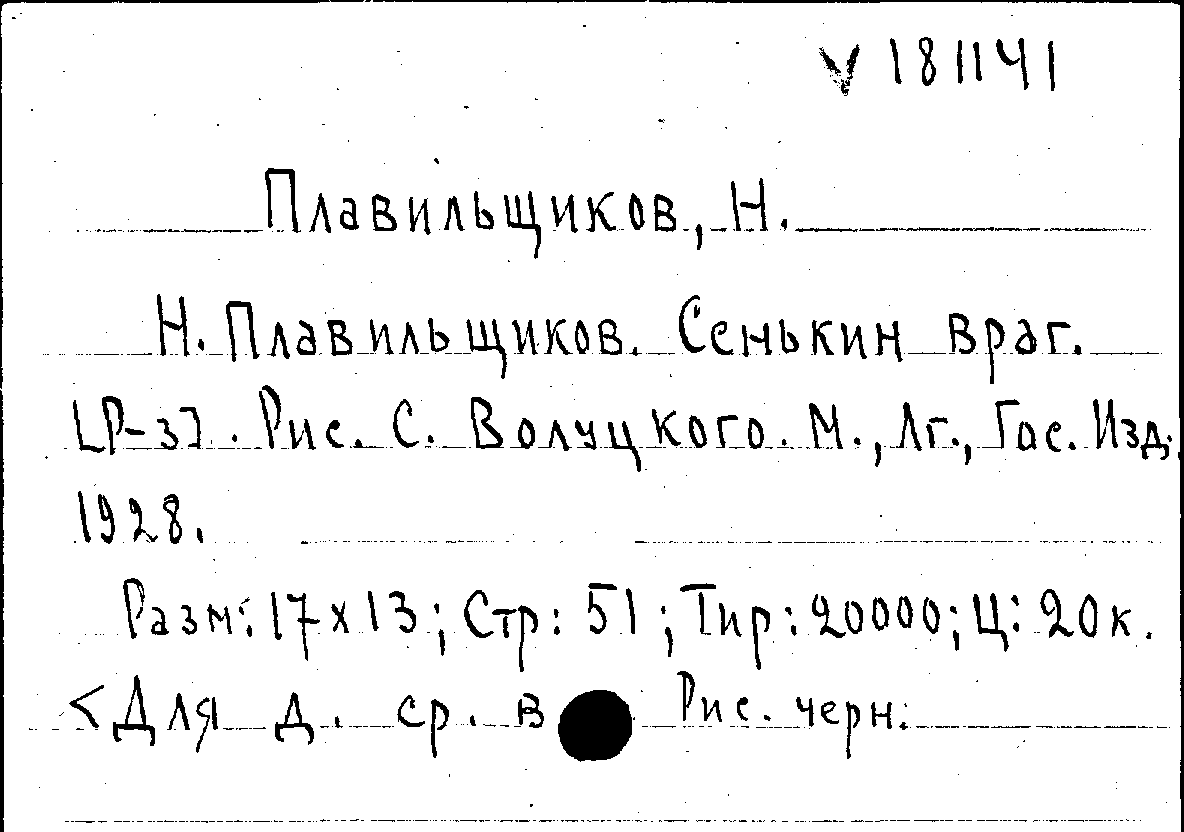 V 181141
Плавильщиков, Н.
Н. Плавильщиков. Сенькин враг.
[Р-з]. Рис. С. Волуцкого. М., Лг., Гос. Изд.
1928.
Разм: 17х13; Стр: 51; Тир: 20000; Ц: 20к.
<Для д. ср. в Рис. черн.